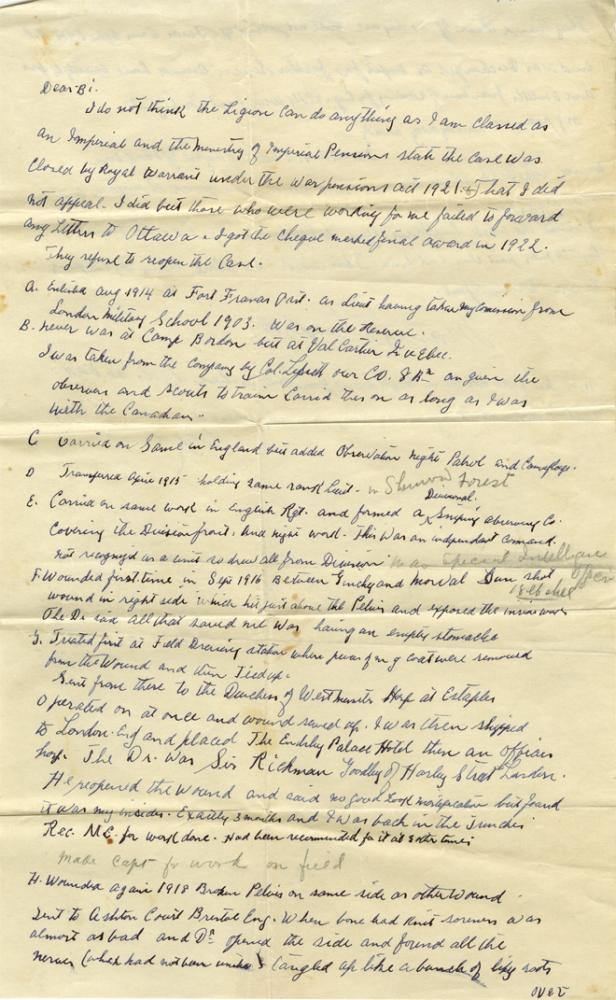 Dear Bi.
I do not think the Ligion Can do anything as I am Classed as
an Imperial and the Ministry of Imperial Pensions state the Case was
Closed by Royal Warrant under the War pensions act 1921. That I did
not appeal. I did but those who were working for me failed to forward
any letters to Ottawa. I got the cheque marked final award in 1922.
They refuse to reopen the Case.
A. Enlisted Aug 1914 at Fort Frances Ont. as Lieut having taken my Comission from
London Military School 1903. Was on the Reserve.
B. never was at Camp Bordon but at Val Cartier Quebec.
I was taken from the Company by Col. Lipsett our C.O. 8 Bn an given the
observers and scouts to train Carried this on as long as I was
with the Canadian.
C Carried on Same in England but added Observation night Patrol and Camoflage.
D Transfered 1915 holding same rank Lieut. in Forest
E. Carried on same work in English Rgt. and formed a Divisional Sniping observing Co.
Covering the Division front. And night work. This was an independent command.
not recognized as a unit so drew all from Division as Special Intelligence
Officer
F. Wounded first time in Sept 1916 Between Ginchy and Morval Gun shot
wound in right side which hit just above the Pelvis and exposed the
The Dr said all that saved me was having an empty stomach
G. Treated first at Field Dressing station where pieces of my coat were removed
from the Wound and then Tied up.
Sent from there to the Duchess of Westminster Hosp at Estaples
Operated on at once and wound sewed up. I was then shipped
to London. Eng and placed The Endsley Palace Hotel then an officers
hosp. The Dr. Was Sir Rickman Goodley of Harley Street London.
He reopened the wound and said no good but found
it was my insides. Exactly 3 months and I was back in the Trenches
Rec. M.C. for work done. Had been recommended for it at other times
Made Capt for work on field
H. Wounded again 1918 Broken Pelvis on same side as other Wound
Sent to Ashton Court Bristol Eng. When bone had knit soreness was
almost as bad and Dr opened the side and found all the
nerves (which had not been ) tangled up like a bunch of roots
over